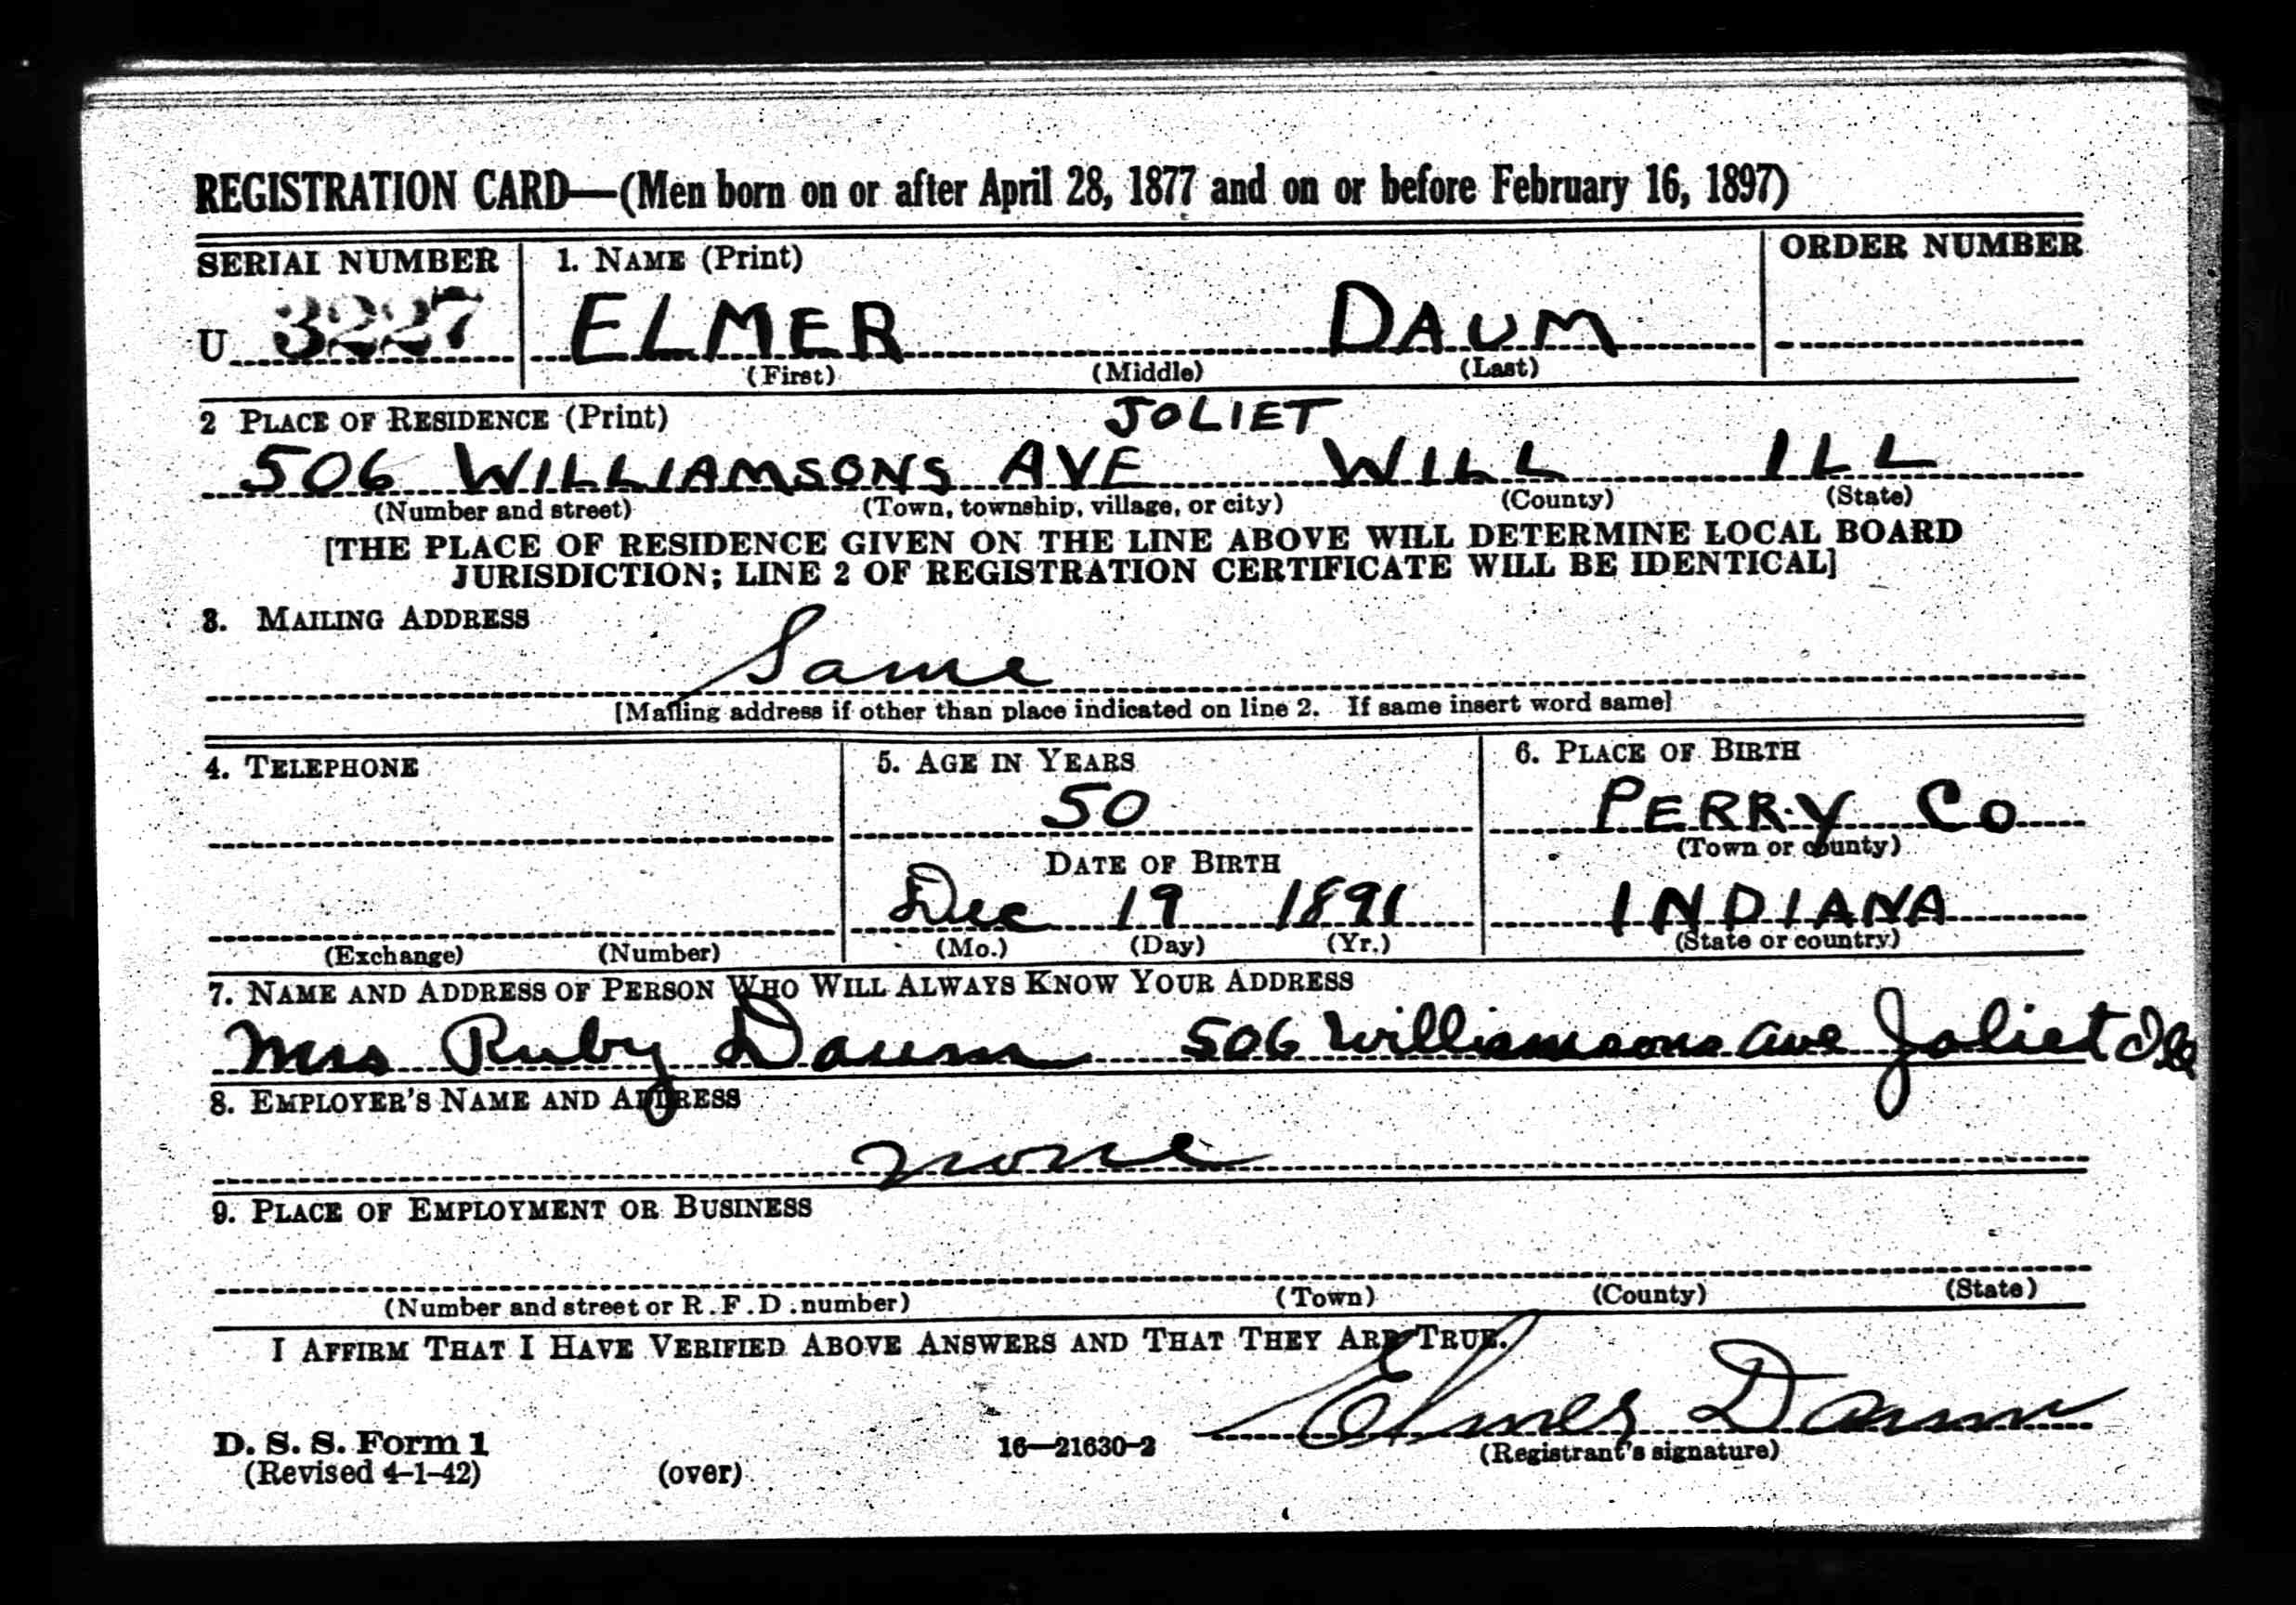 REGISTRATION CARD—(Men born on or after April 28, 1877 and on or before February 16, 1897)
SERIAL NUMBER 1. NAME (Print) ORDER NUMBER
U 3227 ELMER DAUM
(First) (Middle) (Last)
2 PLACE OF RESIDENCE (Print) JOLIET
506 WILLIAMSONS AVE WILL ILL
(Number and street) (Town, township, village, or city) (County) (State)
[THE PLACE OF RESIDENCE GIVEN ON THE LINE ABOVE WILL DETERMINE LOCAL BOARD
JURISDICTION; LINE 2 OF REGISTRATION CERTIFICATE WILL BE IDENTICAL]
3. MAILING ADDRESS
Same
[Mailing address if other than place indicated on line 2. If same insert word same]
4. TELEPHONE 5. AGE IN YEARS 6. PLACE OF BIRTH
50 PERRY CO
(Town or county)
DATE OF BIRTH
Dec 19 1891 INDIANA
(Exchange) (Number) (Mo.) (Day) (Yr.) (State or country)
7. NAME AND ADDRESS OF PERSON WHO WILL ALWAYS KNOW YOUR ADDRESS
Mrs Ruby Daum 506 Williamsons Ave Joliet Ill
8. EMPLOYER'S NAME AND ADDRESS
none
9. PLACE OF EMPLOYMENT OR BUSINESS
(Number and street or R.F.D. number) (Town) (County) (State)
I AFFIRM THAT I HAVE VERIFIED ABOVE ANSWERS AND THAT THEY ARE TRUE.
Elmer Daum
D. S. S. Form 1 16—21630-2 (Registrant's signature)
(Revised 4-1-42) (over)